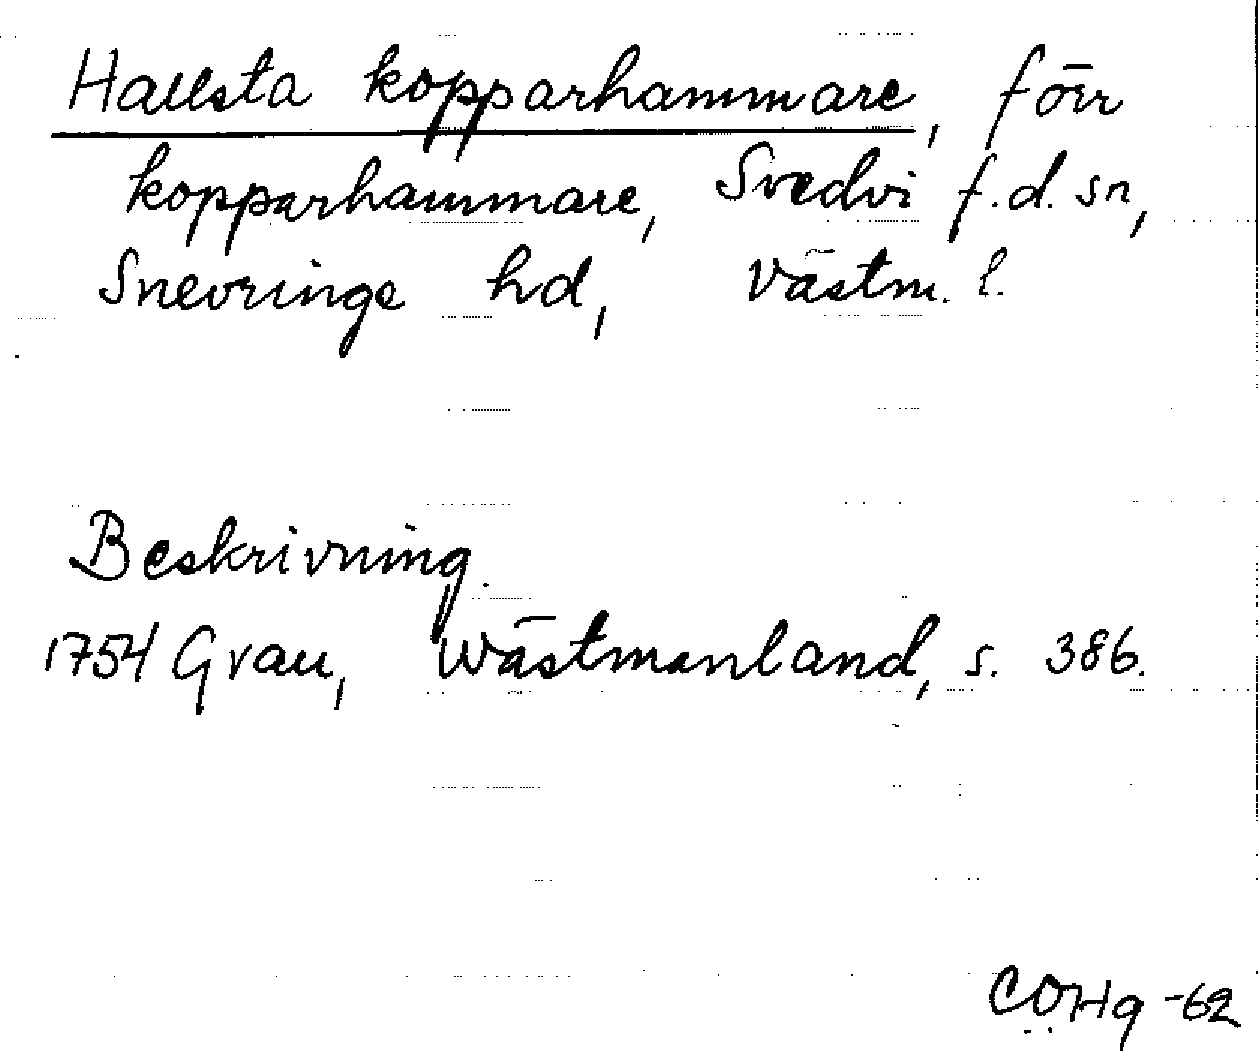 Hallsta kopparhammare, förr
kopparhammare, Svedvi f.d. sn,
Snevringe hd, Västm. l.
Beskrivning.
1754 Grau, Wästmanland, s. 386.
COHg -62